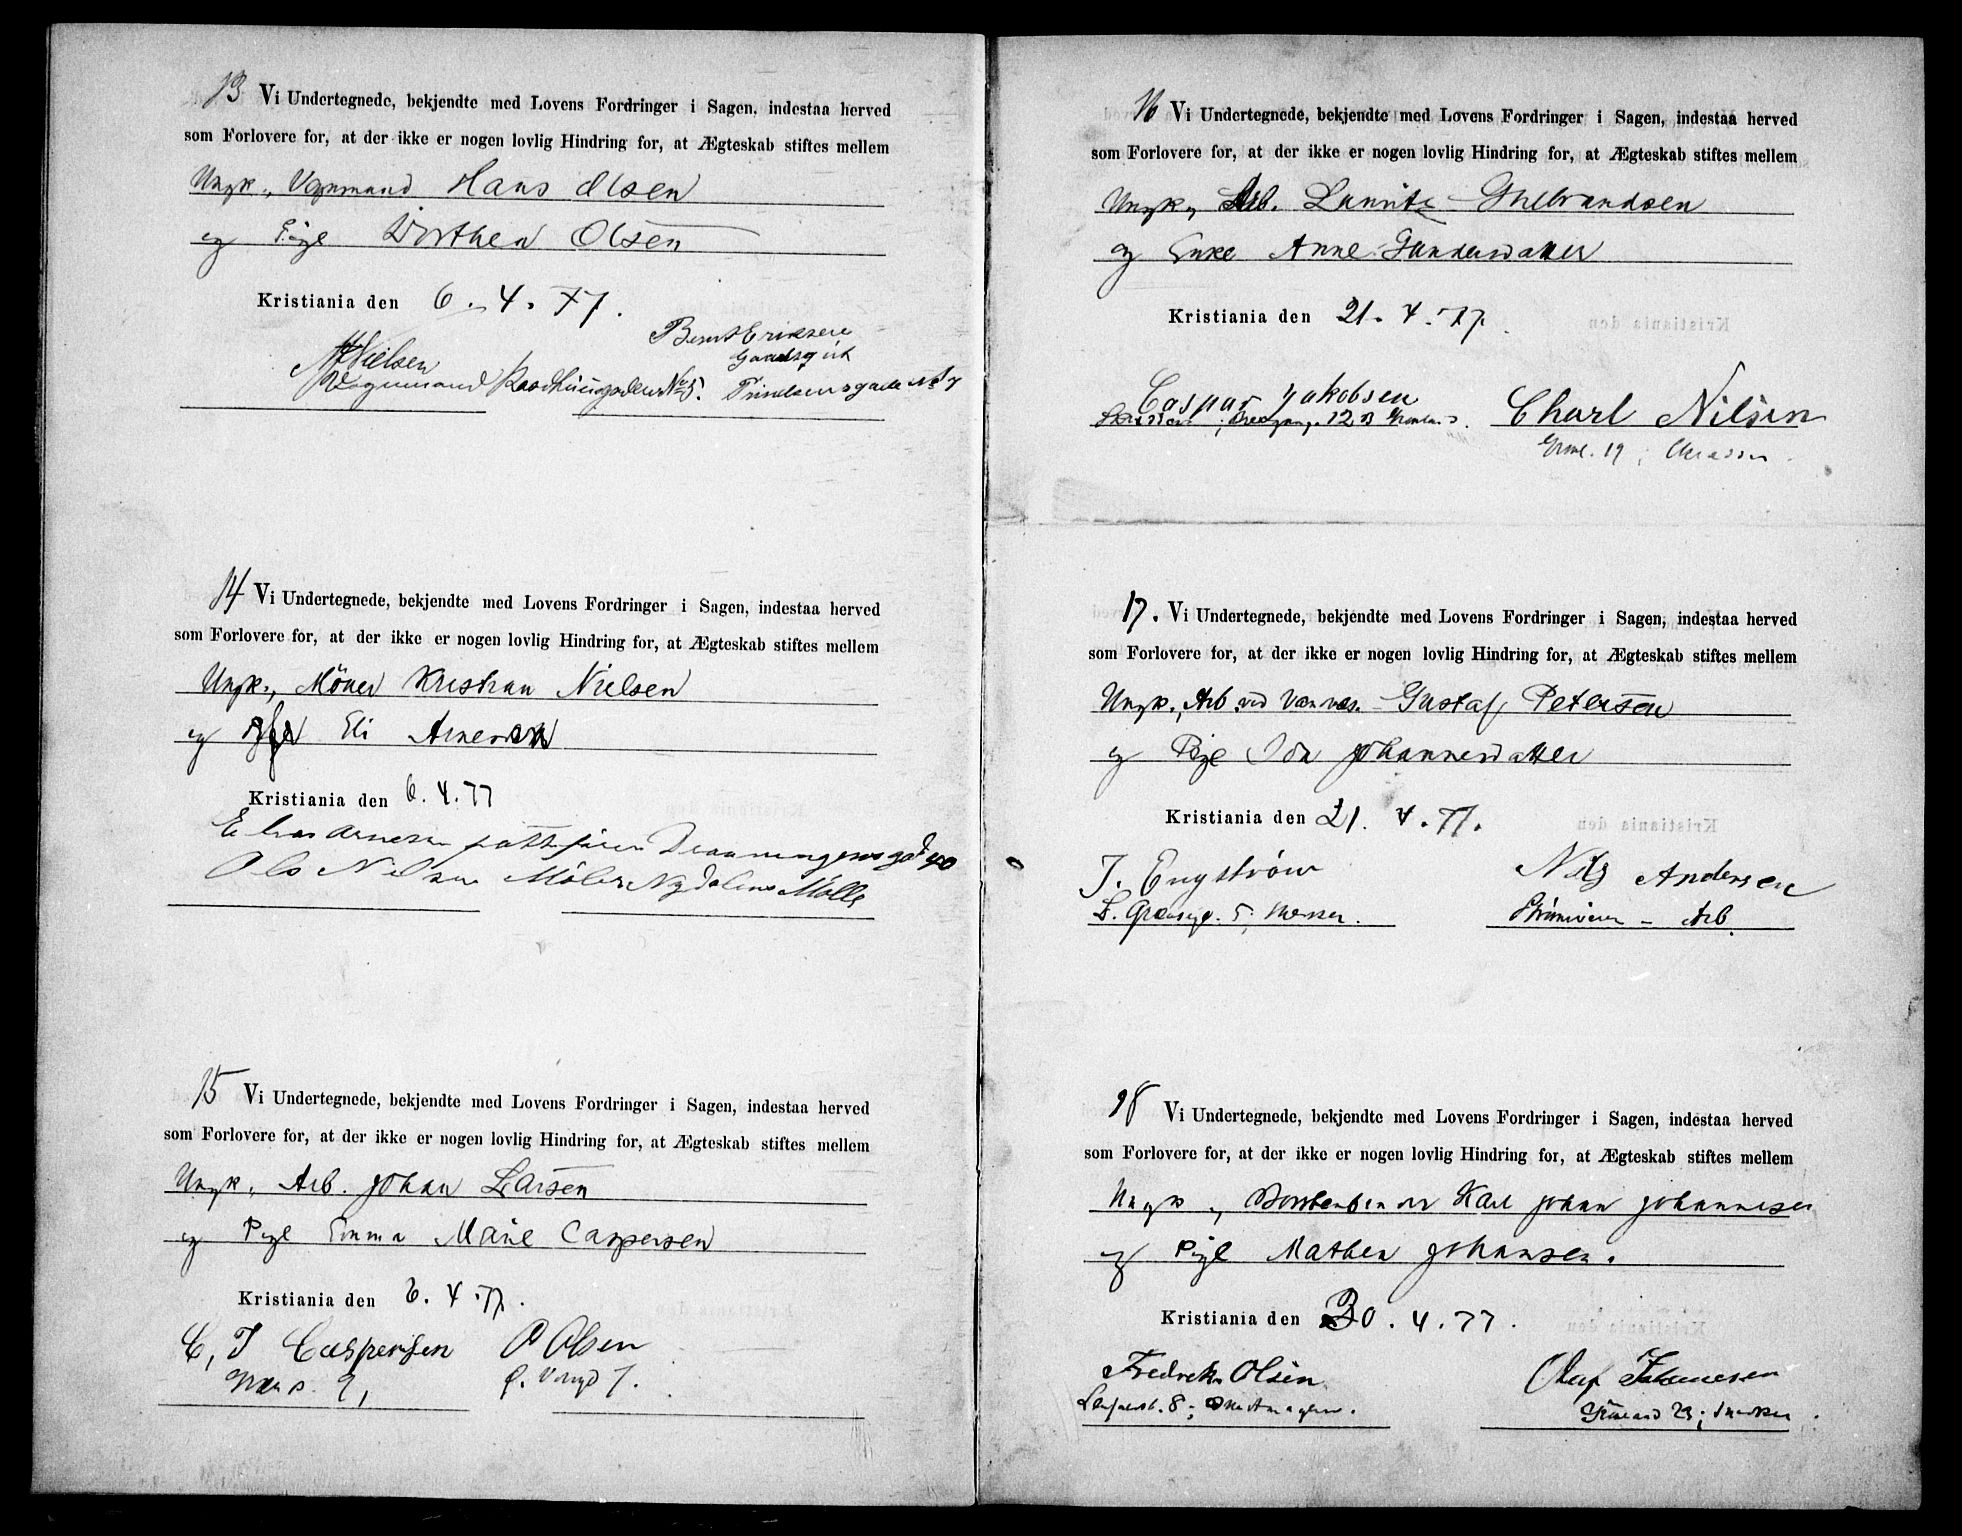 13 Vi Undertegnede, bekjendte med Lovens Fordringer i Sagen, indestaa herved
som Forlovere for, at der ikke er nogen lovlig Hindring for, at Ægteskab stiftes mellem
Ungk., Vognmand Hans Olsen
og Pige Dorthea Olsen
Kristiania den 6. 4. 77.
Nielsen
Bernt Eriksen
Vognmand No 5.
14 Vi Undertegnede, bekjendte med Lovens Fordringer i Sagen, indestaa herved
som Forlovere for, at der ikke er nogen lovlig Hindring for, at Ægteskab stiftes mellem
Ungk., Möller Kristian Nielsen
og Eli
Kristiania den 6. 4. 77
Arnesen
Ole Nilsen Möller Nydalens Mölle
15 Vi Undertegnede, bekjendte med Lovens Fordringer i Sagen, indestaa herved
som Forlovere for, at der ikke er nogen lovlig Hindring for, at Ægteskab stiftes mellem
Ungk., Arb. Johan Larsen
og Pige Emma Marie Caspersen
Kristiania den 6. 4. 77.
C, J Caspersen
P Olsen
16 Vi Undertegnede, bekjendte med Lovens Fordringer i Sagen, indestaa herved
som Forlovere for, at der ikke er nogen lovlig Hindring for, at Ægteskab stiftes mellem
Ungk., Arb. Lauritz Gulbrandsen
og Enke Anne Gundersdatter
Kristiania den 21. 4. 77.
Caspar Jakobsen
12 B
Charl Nilsen
Grønl. 19;
17. Vi Undertegnede, bekjendte med Lovens Fordringer i Sagen, indestaa herved
som Forlovere for, at der ikke er nogen lovlig Hindring for, at Ægteskab stiftes mellem
Ungk., Arb. ved Gustaf Petersen
og Pige Ida Johannesdatter
Kristiania den 21. 4. 77.
J. Engström
Nils Andersen
Arb.
18 Vi Undertegnede, bekjendte med Lovens Fordringer i Sagen, indestaa herved
som Forlovere for, at der ikke er nogen lovlig Hindring for, at Ægteskab stiftes mellem
Ungk., Børstenbinder Karl Johan Johannesen
og Pige Mathea Johansen.
Kristiania den 30. 4. 77.
Fredrik Olsen
Olaf Johannesen
8;
Grønland 29; Snedker